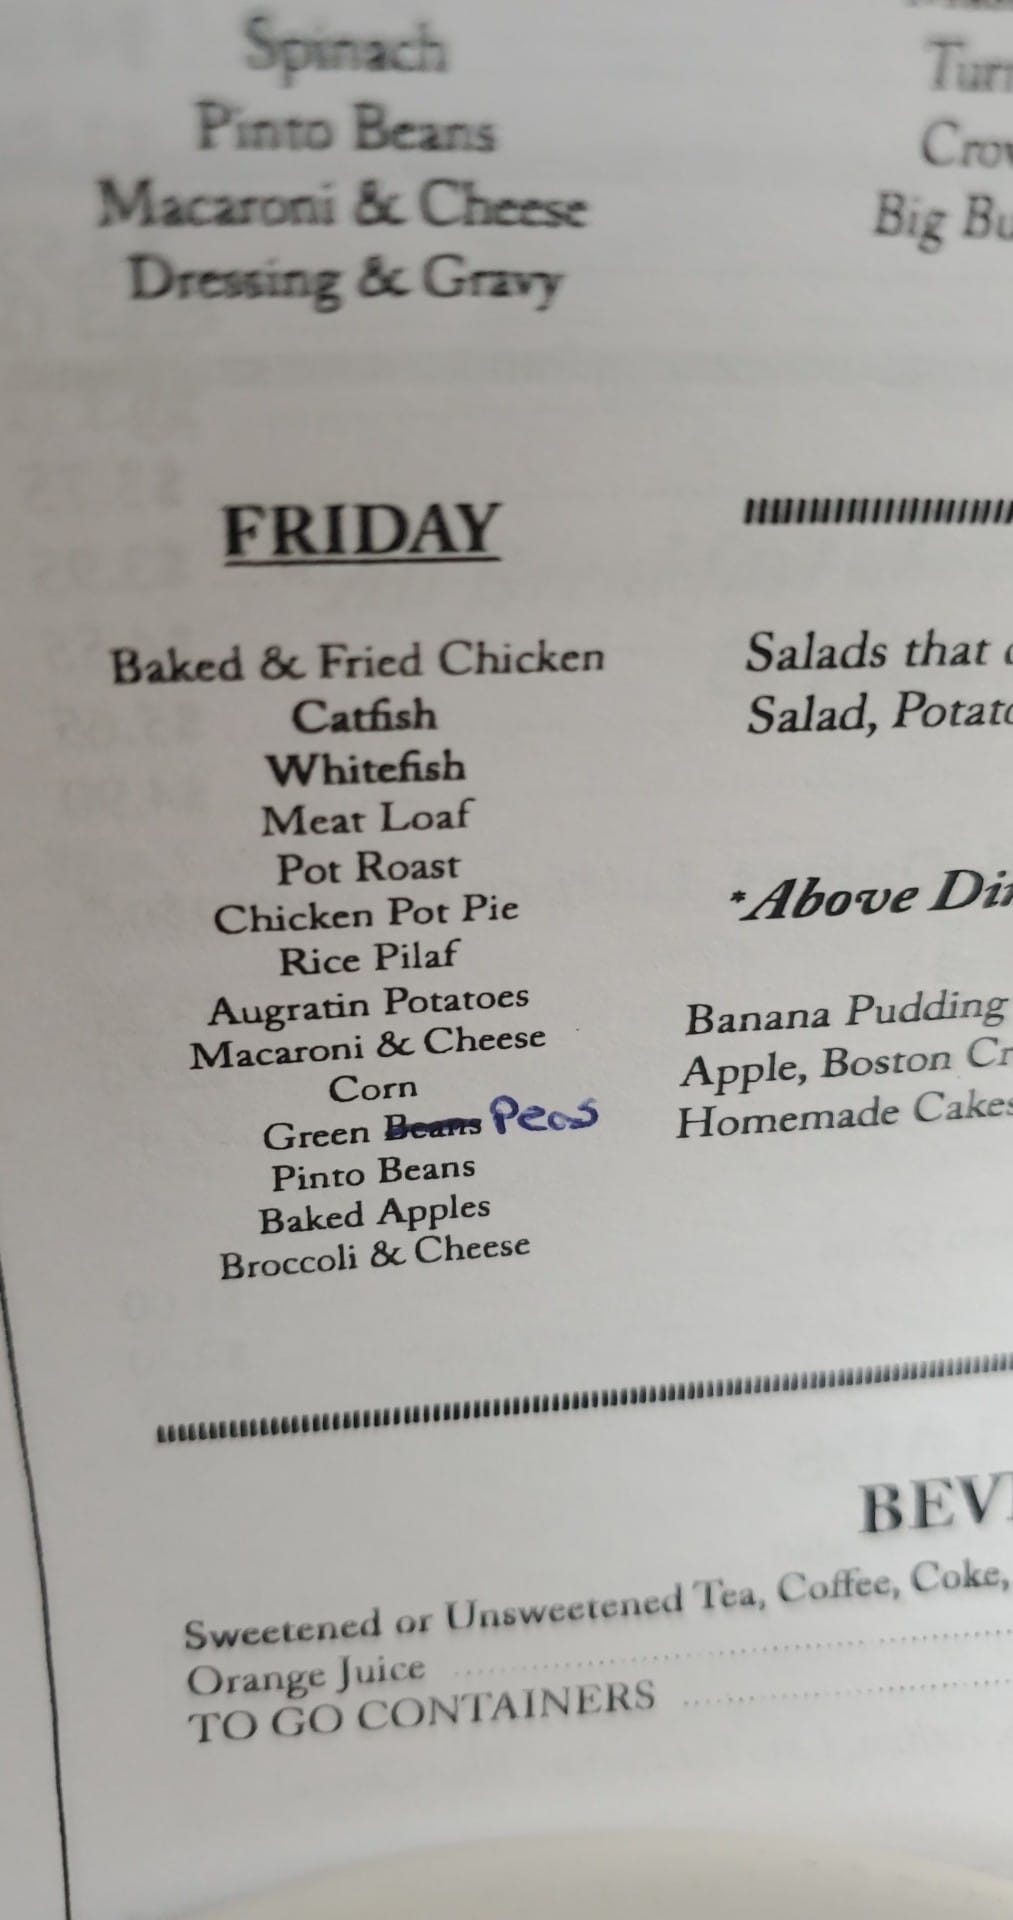 Spinach
Pinto Beans
Macaroni & Cheese
Dressing & Gravy
Big
FRIDAY
Baked & Fried Chicken
Catfish
Whitefish
Meat Loaf
Pot Roast
Chicken Pot Pie
Rice Pilaf
Augratin Potatoes
Macaroni & Cheese
Corn
Green Beans Peas
Pinto Beans
Baked Apples
Broccoli & Cheese
Salads that
Salad,
*Above
Banana Pudding
Apple, Boston
Homemade Cakes
Sweetened or Unsweetened Tea, Coffee, Coke,
Orange Juice
TO GO CONTAINERS